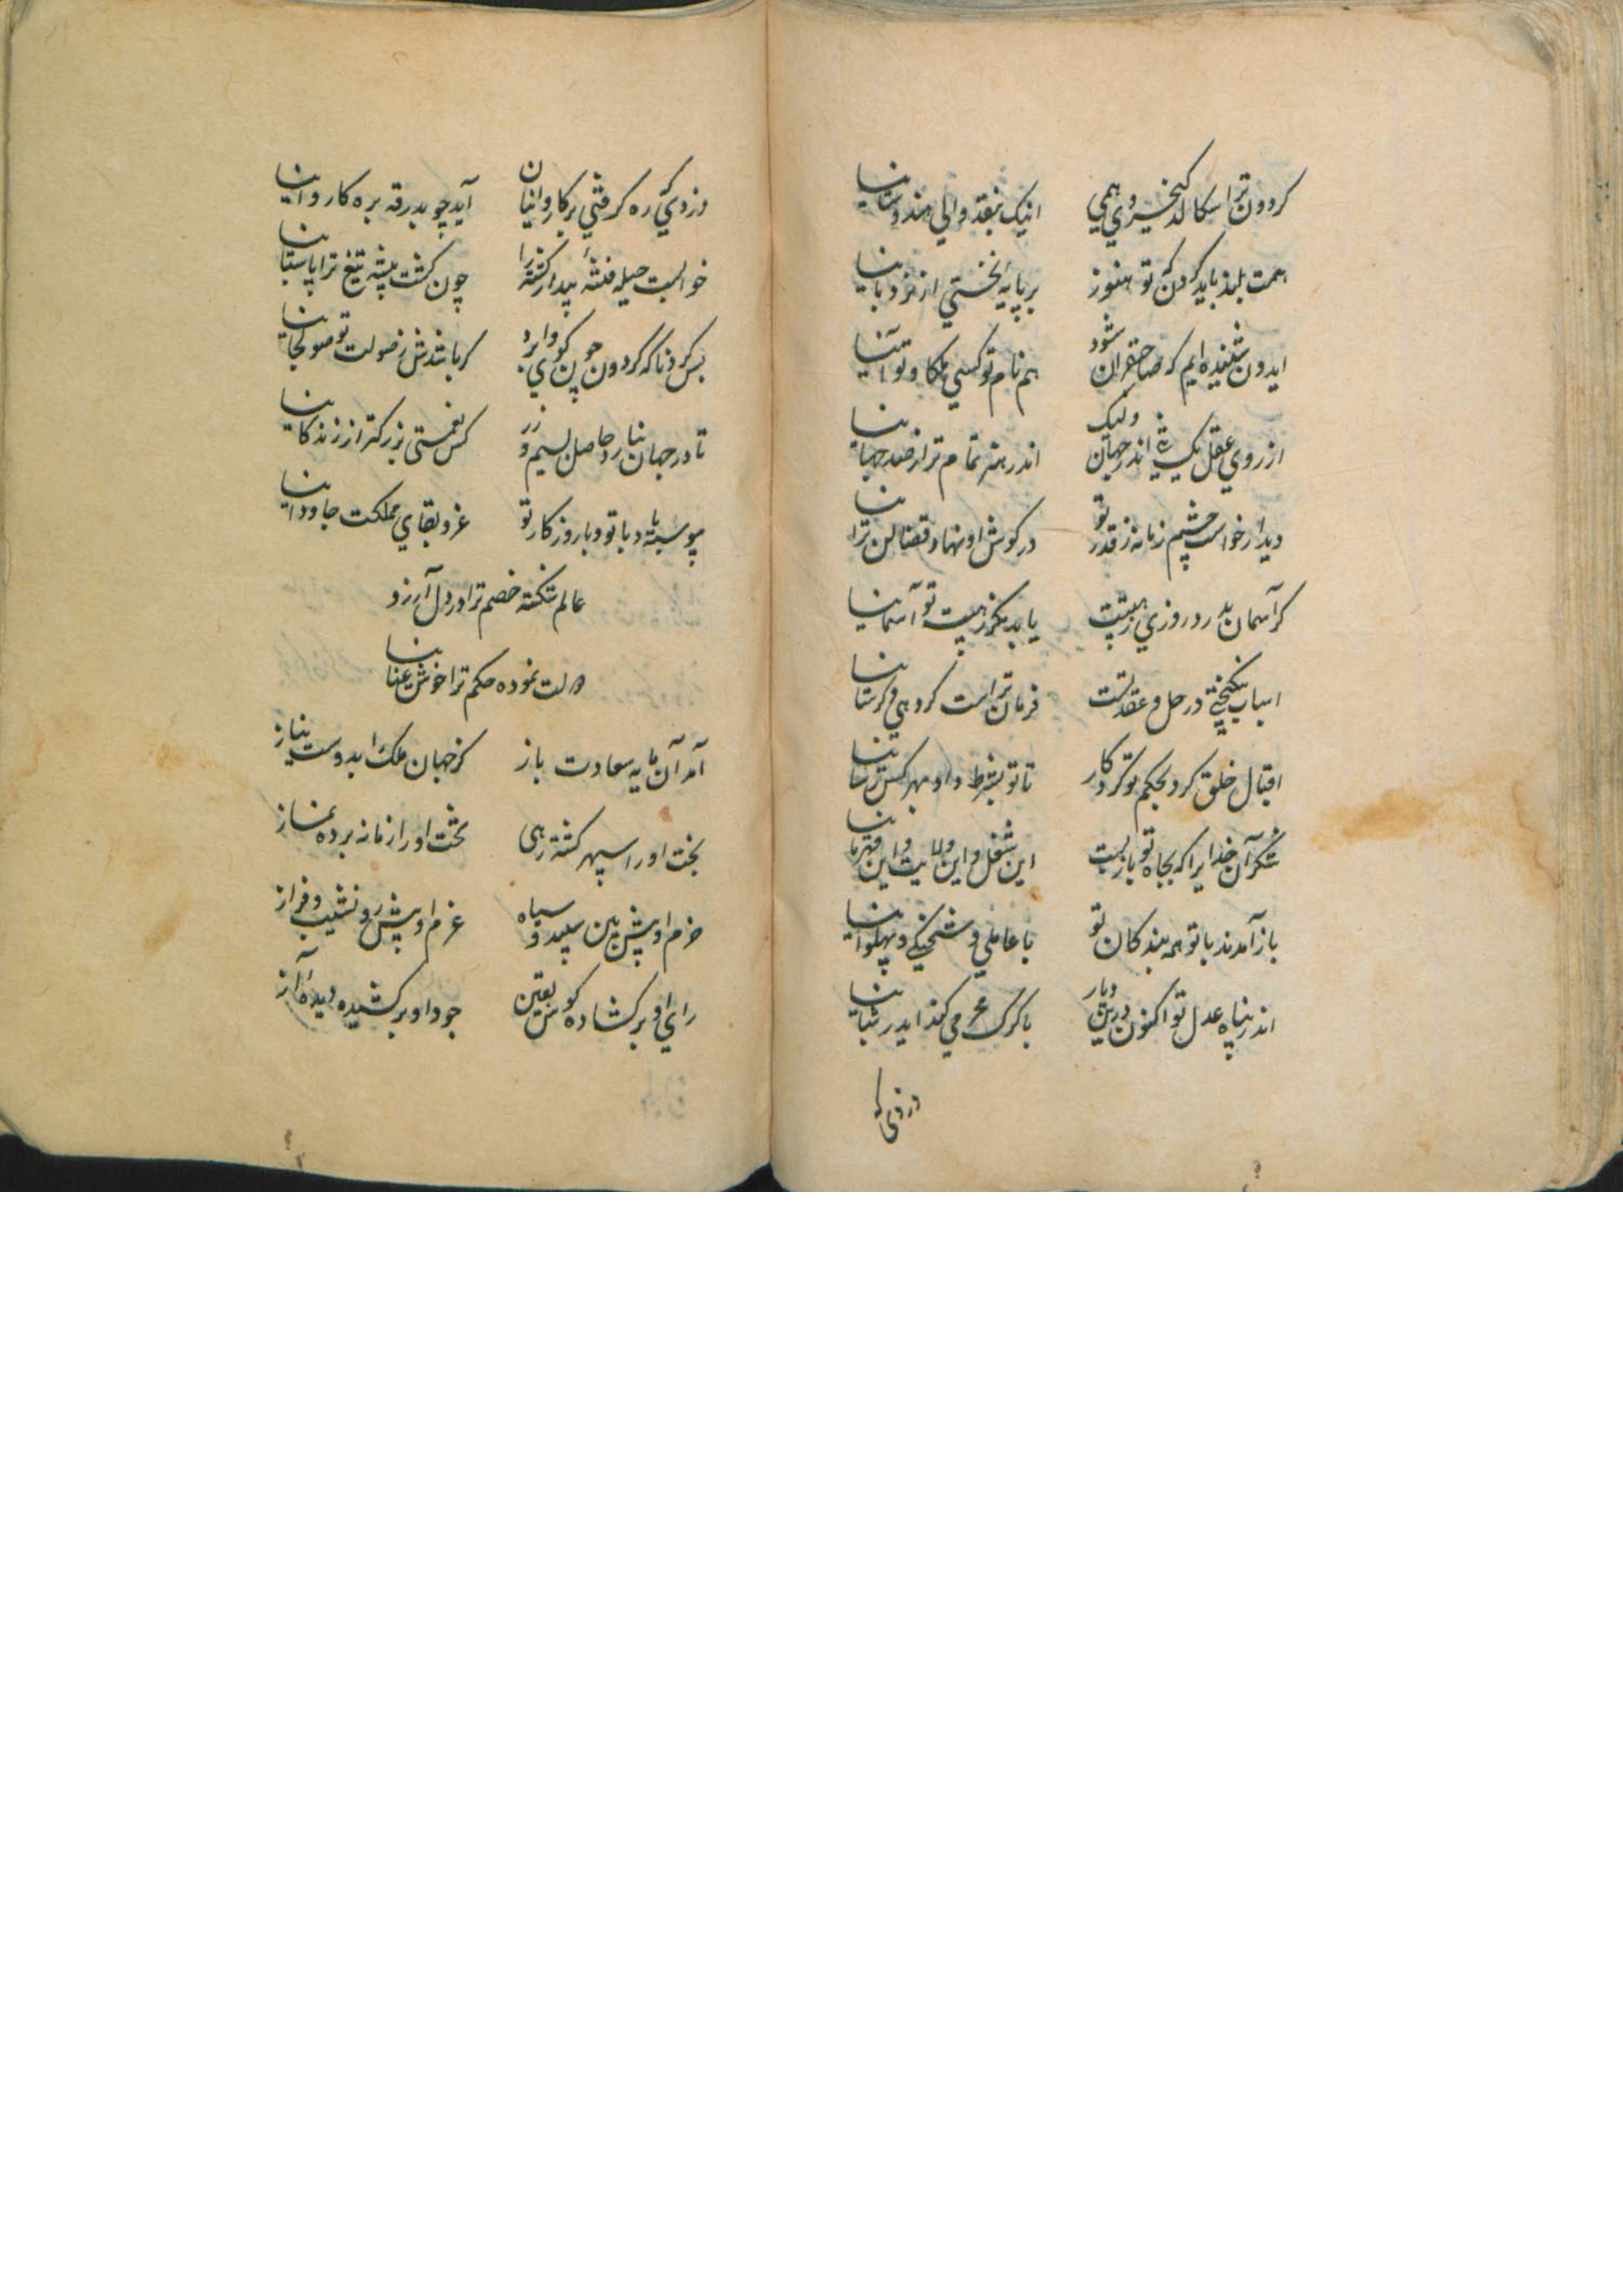 کردون ترا سکالد کیخسروی همی اینک بنقد والی هندوستانیا
همت بلند باید کردن که تو هنوز بر پایهٔ نخستی از نردبانیا
ایدون شنیده ایم که صاحبقران شود هم نام تو کسی ملکا و تو آنیا
از روی عقل یک تنی اندر جهان ولیک اندر هنر تمام تر از صد جهانیا
دیدار خواست چشم زمانه ز قدر تو در کوش او نهاد قضا لن ترانیا
کر آسمان بدرد روزی ز هیبتت یابد مکر ز هیبت تو آسمانیا
اسباب نیکبختی در حل و عقد تست فرمان تراست کر دهی و کر ستانیا
اقبال خلق کرد بحکم تو کردکار تا تو بشرط داد بهر کس رسانیا
شکر آن خدایرا که بجاه تو باز بست این شغل و این ولایت و این قهرمانیا
باز آمدند با تو همه بندکان تو با عاملی و شحنکی و پهلوانیا
اندر پناه عدل تو اکنون درین دیار با کرک غرم می کند ایدر شبانیا
دزدی که
دزدی که ره کرفتی بر کاروانیان آید چو بدرقه بره کاروانیا
خوابست حیله فتنهٔ بیدار کشته را چون کشت پیشه تیغ ترا پاسبانیا
بس کردنا که کردون چون کوی وا برد کر باشدش ز صولت تو صولجانیا
تا در جهان نیارد حاصل بسیم و زر کس نعمتی بزرکتر از زندکانیا
پیوسته باد با تو و با روزکار تو عز و بقای مملکت جاودانیا
عالم شکسته خصم ترا در دل آرزو
دولت نموده حکم ترا خوش عنانیا
آمد آن مایه سعادت باز کز جهان ملک را بدوست نیاز
بخت او را سپهر کشته رهی تخت او را زمانه برده نماز
حزم او پیش بین سپید و سیاه عزم او پیش رو نشیب و فراز
رای او بر کشاده کوش یقین جود او بر کشیده دیدهٔ آز